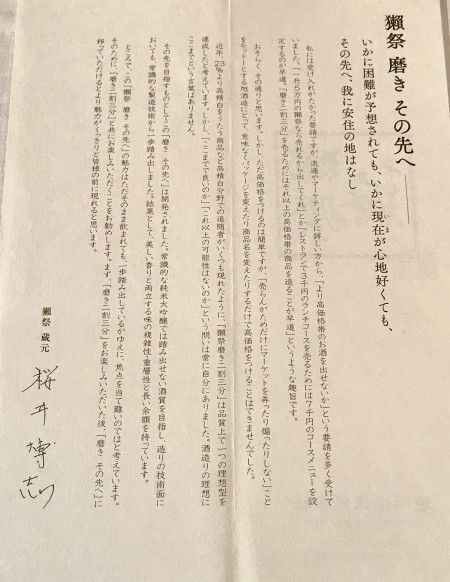 獺祭 磨き その先へ――
いかに困難が予想されても、いかに現在が心地好くても、
いま
その先へ、我に安住の地はなし
私には受け入れがたかった要請ですが、流通やマーケティングに詳しい方から、「より高価格帯のお酒を出せないか」という要請を多く受けて
いました。「一升5万円の獺祭なら売れるから出してくれ」とか「レストランで3千円のランチコースを売るためには7千円のコースメニューを設
定するのが早道。「磨き二割三分」を売るためにはそれ以上の高価格帯の商品を造ることが早道」というような趣旨です。
おそらく、その通りと思います。しかし、ただ高価格をつけるのは簡単ですが、「売らんがためだけにマーケットを弄ったり煽ったりしない」こと
をモットーとする旭酒造にとって、意味なくパッケージを変えたり商品名を変えたりするだけで高価格をつけることはできませんでした。
近年、23%より高精白をうたう商品など高精白分野での追随者がいくつも現れたように、「獺祭磨き二割三分」は品質上で一つの理想型を
達成したと考えています。しかし、「ここまでで良いのか」「これ以上の可能性はないのか」という問いは常に自分にありました。酒造りの理想に
「ここまで」という言葉はありません。
その先を目指すものとしてこの「磨き その先へ」は開発されました。常識的な純米大吟醸では踏み出せない酒質を目指し、造りの技術面に
おいても、常識的な製造技術から一歩踏み出しました。結果として、美しい香りと両立する味の複雑性・重層性と長い余韻を持っています。
ところで、この「獺祭 磨き その先へ」の魅力はただそのまま飲まれても、一歩踏み出しているがゆえに、焦点を当て難いのではと考えています。
そのために、「磨き二割三分」と共にお楽しみいただくことをお勧めします。まず、「磨き二割三分」をお楽しみいただいた後、「磨き その先へ」に
移っていただけるとより魅力がくっきりと皆様の前に現れると思います。
獺祭 蔵元
桜井博志